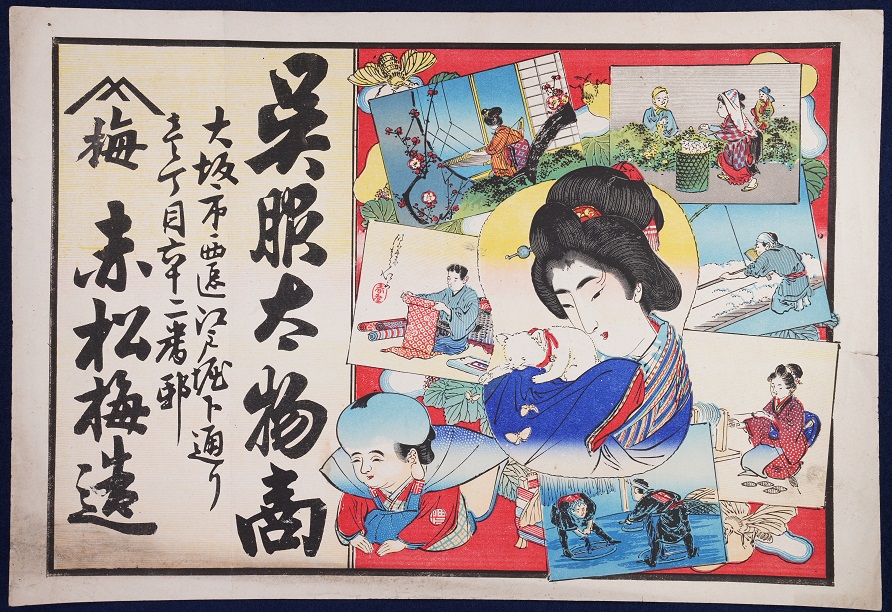 呉服太物商
大坂市西区江戸堀下通り
壱丁目六十二番邸
梅
赤松梅造